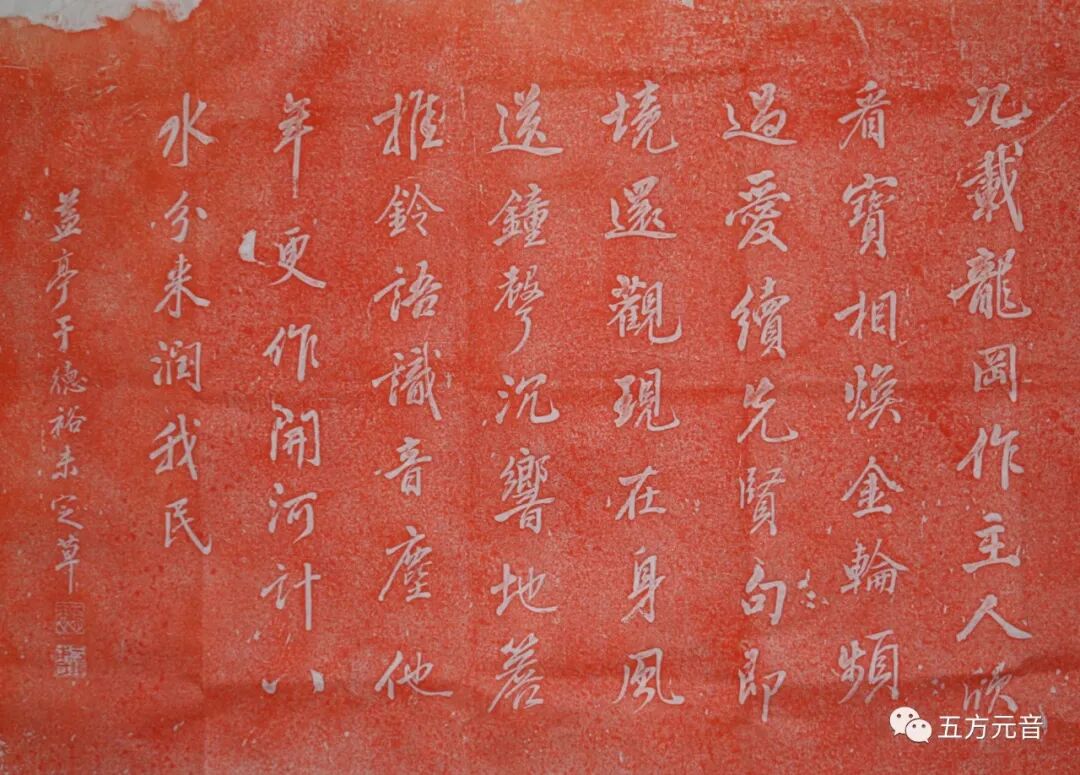 九載龍岡作主人欣
看寶相煥金輪頻
過愛續先賢句即
境還觀現在身風
送鐘聲沉響地簷
推鈴語識音塵他
年更作開河計八
水分来润我民
益亭于德裕未定草
五方元音